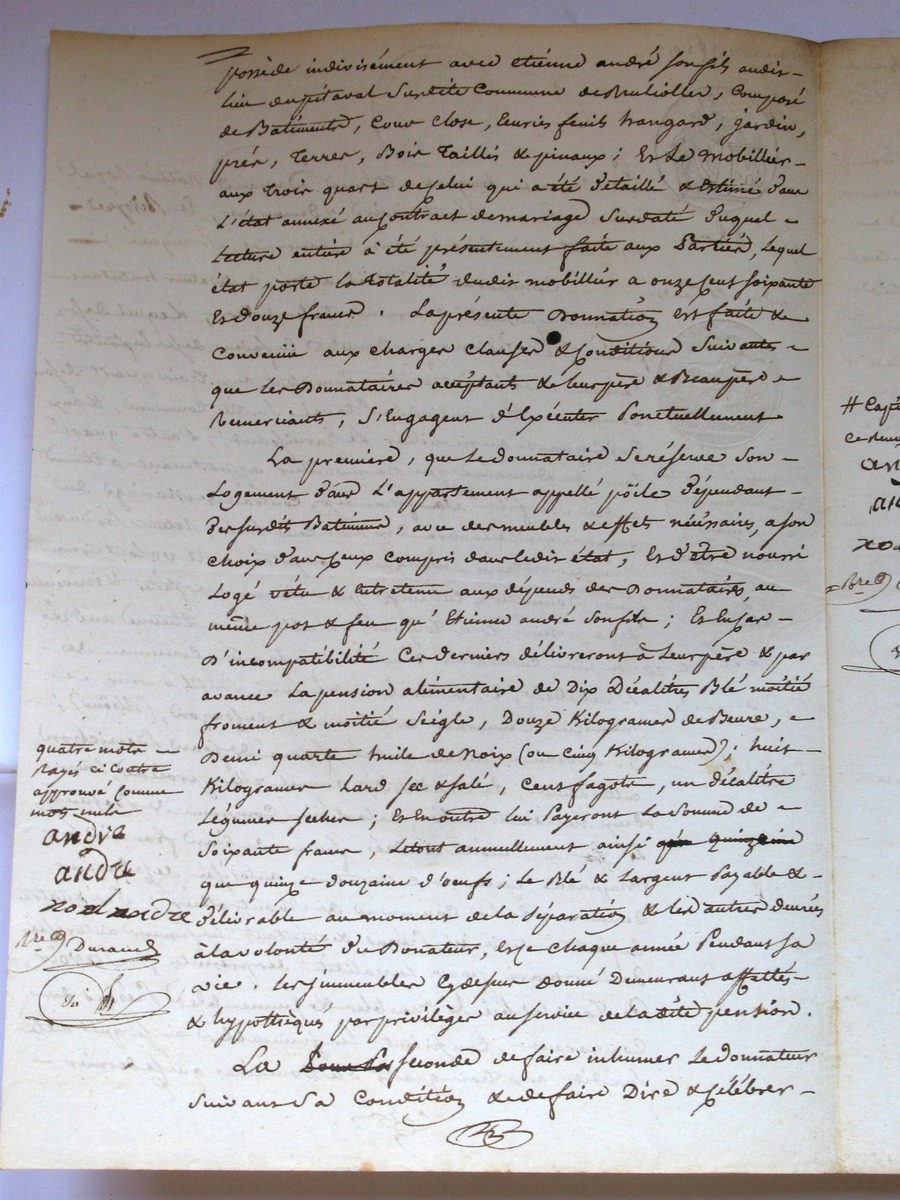 possède indivisément avec etienne andré son fils audit
lieu dupétaval Surdite Commune de Bruliolles, Composé
de Batiments, Cour close, Ecuries fenils hangard, jardin,
prés, Terres, Bois Taillis & pinaux ; Et Le Mobillier
aux trois quart decelui qui a été Détaillé & Estimé dans
L'état annexé aucontract demariage Susdaté Duquel
Lecture entière à été présentement faite aux Parties, Lequel
état porte la totalité dudit mobillier a onze Cent soixante
Et Douze francs. La présente Donnation est faite &
Convenüe aux charges clauses & Conditions Suivantes
que Les Donnataires acceptants & leur père & Beaupère
Remerciants, S'Engagent D'Exécuter Ponctuellement
La première, que Le donnataire Seréserve Son
Logement dans L'appartement appellé pöile Dépendant
Desdits Batiments, avec des meubles & effets nécessaires, a son
choix Dans Ceux compris dans ledit état, Et D'être nourri
Logé Vétu & Entretenu aux dépends des Donnataires, au
même pot & feu qu' Etienne andré Son fils ; Et En Cas
D'incompatibilité Ces derniers délivreront à Leur père & par
avance La pension alimentaire de Dix Décalitres Blé moitié
froment & moitié Seigle, Douze Kilogrames de Beure,
Demi quarte huile de Noix (ou Cinq Kilogrames) ; huit
Kilogrames Lard sec & salé, Cent fagots, un décalitre
Légumes seches ; Et En outre lui Payeront La Somme de
Soixante francs, Letout annuellement ainsi
que quinze douzaine d'oeufs ; Le Blé & Largent Payable &
Délivrable au moment de la Séparation & les autres denrées
à la volonté Du Donateur, Et Ce chaque année Pendant sa
vie. Les jmmeubles Cydessus donné Demeurant affectés
& hypothèqués par privilèges au service de ladite pension.
La seconde de faire inhumer Le donnateur
Suivant Sa Condition & de faire Dire & Célébrer
quatre mots
Rayés ci Contre
approuvé Comme
mots nuls
andré
andré
noel andre
Durand
# Cap
andré